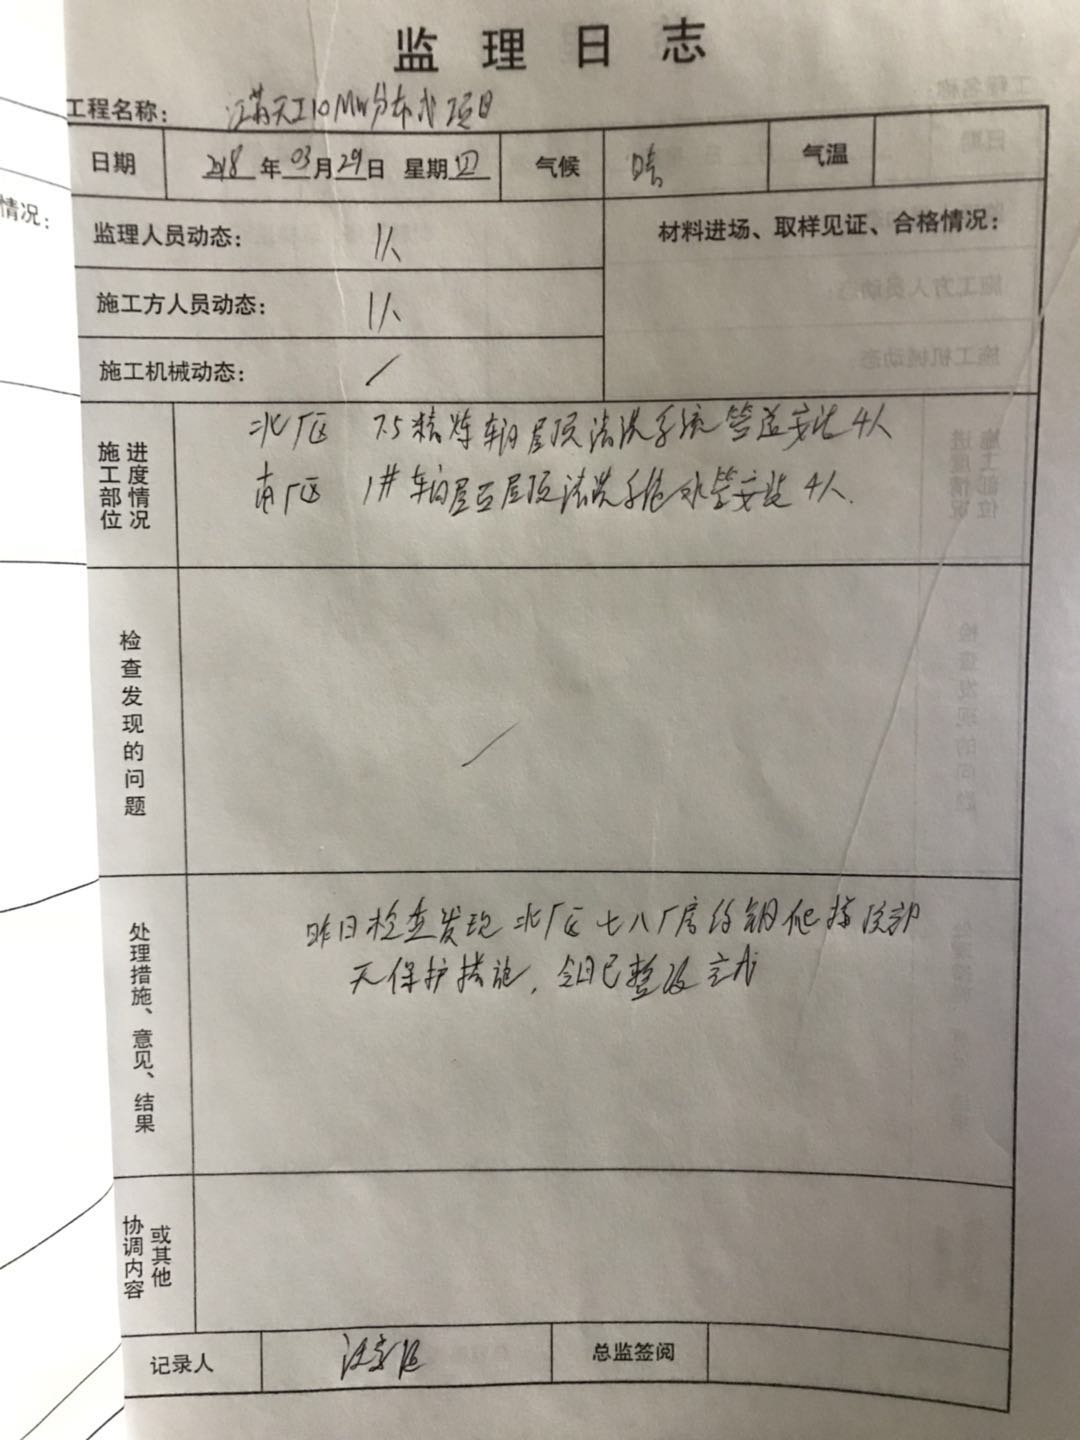 监理日志
工程名称： 江苏天工10MW分布式项目
日期 2018年03月29日 星期四 气候 晴 气温
监理人员动态： 1人 材料进场、取样见证、合格情况：
施工方人员动态： 1人
施工机械动态： /
施工部位进度情况
北厂区 7.5精炼车间屋顶清洗系统管道安装4人
南厂区 1#车间屋顶清洗 水管安装4人.
检查发现的问题
/
处理措施、意见、结果
昨日检查发现北厂区七八厂房的钢爬梯
无保护措施，今日已整改完成
协调内容或其他
记录人 总监签阅
情况：